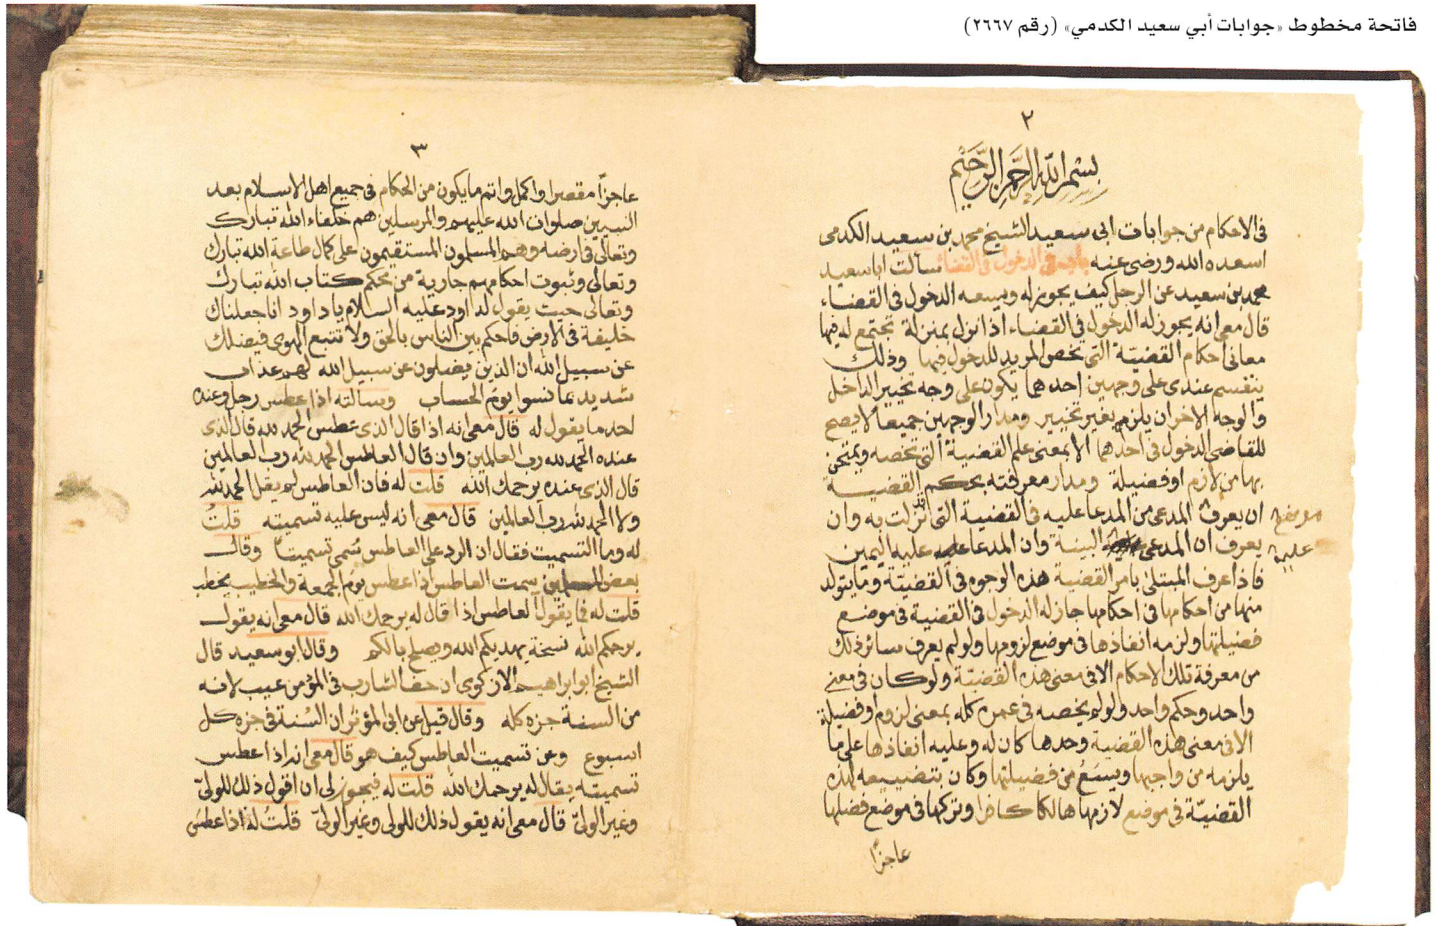 فاتحة مخطوط «جوابات أبي سعيد الكدمي» (رقم ٢٦٦٧)
٢
بسم الله الرحمن الرحيم
في الاحكام من جوابات ابي سعيد الشيخ محمد بن سعيد الكدمي
اسعده الله ورضي عنه باب في الدخول في القضاء سألت ابا سعيد
محمد بن سعيد عن الرجل كيف يجوز له ويسعه الدخول في القضاء
قال معي انه يجوز له الدخول في القضاء اذا نزل بمنزلة يجتمع له فيها
معاني احكام القضية التي تخص المريد للدخول فيها وذلك
ينقسم عندي على وجهين احدهما يكون على وجه تخيير الداخل
والوجه الاخر ان يلزم بغير تخيير ومدار الوجهين جميعا لا يصح
للقاضي الدخول في احدهما الا بمعنى علم القضية التي تخصه ويمتحن
بها من لازم او فضيلة ومدار معرفته بحكم القضية
ان يعرف المدعي من المدعا عليه في القضية التي نزلت به وان
موضع
يعرف ان المدعي البينة وان المدعا عليه عليه اليمين
عليه
فاذا عرف المبتلى بامر القضية هذه الوجوه في القضية وما يتولد
منها من احكامها في احكامها جاز له الدخول في القضية في موضع
فضيلتها ولزمه انفاذها في موضع لزومها ولو لم يعرف سائر ذلك
من معرفة تلك الاحكام الا في معنى هذه القضية ولو كان في معنى
واحد وحكم واحد ولو لم يخصه في عمره كله بمعنى لزوم او فضيلة
الا في معنى هذه القضية وحدها كان له وعليه انفاذها على ما
يلزمه من واجبها ويسع من فضيلتها وكان بتضييعه لهذه
القضية في موضع لازمها هالكا كافرا وتركها في موضع فضلها
عاجزا
٣
عاجزا مقصرا واكمل واتم ما يكون من الحكام في جميع اهل الاسلام بعد
النبيين صلوات الله عليهم والمرسلين هم خلفاء الله تبارك
وتعالى في ارضه وهم المسلمون المستقيمون على كمال طاعة الله تبارك
وتعالى وثبوت احكامهم جارية من محكم كتاب الله تبارك
وتعالى حيث يقول لداود عليه السلام يا داود انا جعلناك
خليفة في الارض فاحكم بين الناس بالحق ولا تتبع الهوى فيضلك
عن سبيل الله ان الذين يضلون عن سبيل الله لهم عذاب
شديد بما نسوا يوم الحساب وسالته اذا عطس رجل وعنده
احد ما يقول له قال معي انه اذا قال الذي عطس الحمد لله قال الذي
عنده الحمد لله رب العالمين وان قال العاطس الحمد لله رب العالمين
قال الذي عنده يرحمك الله قلت له فان العاطس لم يقل الحمد لله
ولا الحمد لله رب العالمين قال معي انه ليس عليه تسميته قلت
له وما التسميت فقال ان الرد على العاطس تسمى تسميتا وقال
بعض المسلمين سمت العاطس اذا عطس يوم الجمعة والخطيب يخطب
قلت له فما يقول العاطس اذا قال له يرحمك الله قال معي انه يقول
يرحمكم الله نسخة يهديكم الله ويصلح بالكم وقال ابو سعيد قال
الشيخ ابو ابراهيم الازكوي ان حف الشارب في المؤمن عيب لانه
من السنة جزه كله وقال قيل عن ابي المؤثر ان السنة في جزه كل
اسبوع وعن تسميت العاطس كيف هو قال معي انه اذا عطس
تسميته يقال له يرحمك الله قلت له فيجوز لي ان اقول ذلك للولي
وغير الولي قال معي انه يقول ذلك للولي وغير الولي قلت له اذا عطس